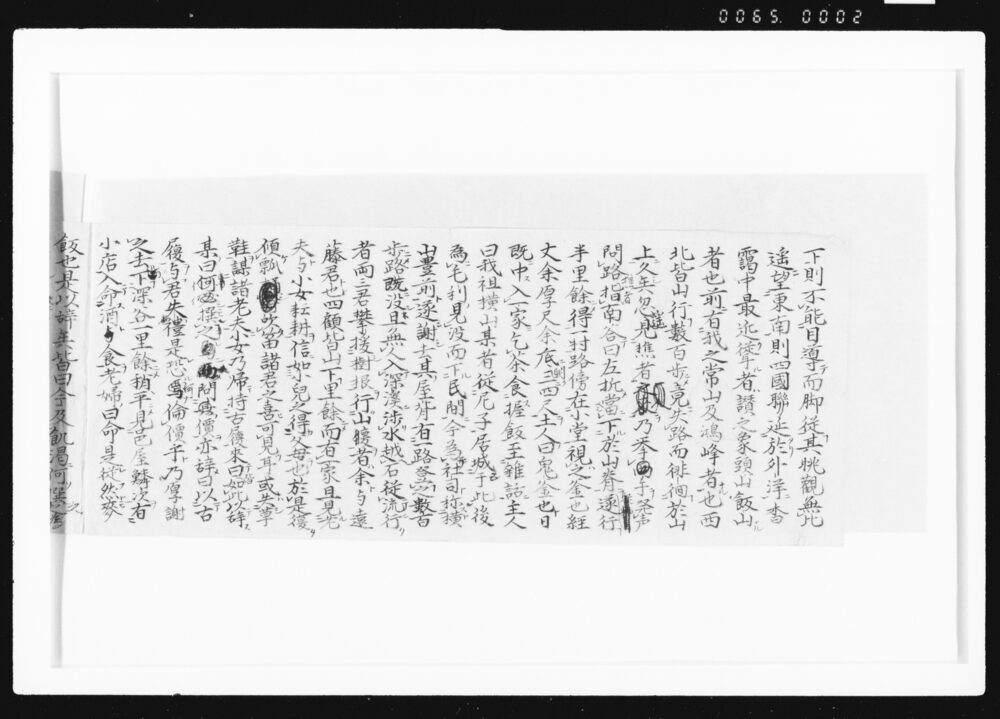 0065. 0002
下則不能目導而脚従其眺観無比
遥望東南則四國聯延於外洋杳
靄中最近聳者讃之象頭山飯山
者也前有我之常山及鴻峰者也西
北皆山行數百歩竟失路而徘徊於山
上久年忽見樵者乃奉手発声
問路指南谷曰左折當下於山脊遂行
半里餘得一村路傍在小堂視之釜也経
丈余厚尺余底三四主人曰鬼釜也日
既中入一家乞茶食握飯至雑話主人
曰我祖横山某者従尼子居城于此後
為毛利見没而下民間今為社司称横
山豊前遂謝去其屋背有一路登之数百
歩路既没且無人入深澤渉水越石従流行
者両三君攀援樹根行山腰者余与遠
藤君也四顧皆山下里餘而有一家且見老
夫与小女耘耕信如小児之得父母也於是復
傾瓢 當諸君之喜可見耳或共寧
鞋謀諸老夫小女乃帰持古履来曰如此以辞
某曰何必撰之 問寡價亦辞曰以古
履与君失禮是恐焉倫價乎乃厚謝
之去下深谷一里餘稍平見邑屋鱗次有
小店入命酒与食老婦曰命是従然麥
飯也是以辞矣皆曰今及飢渇何